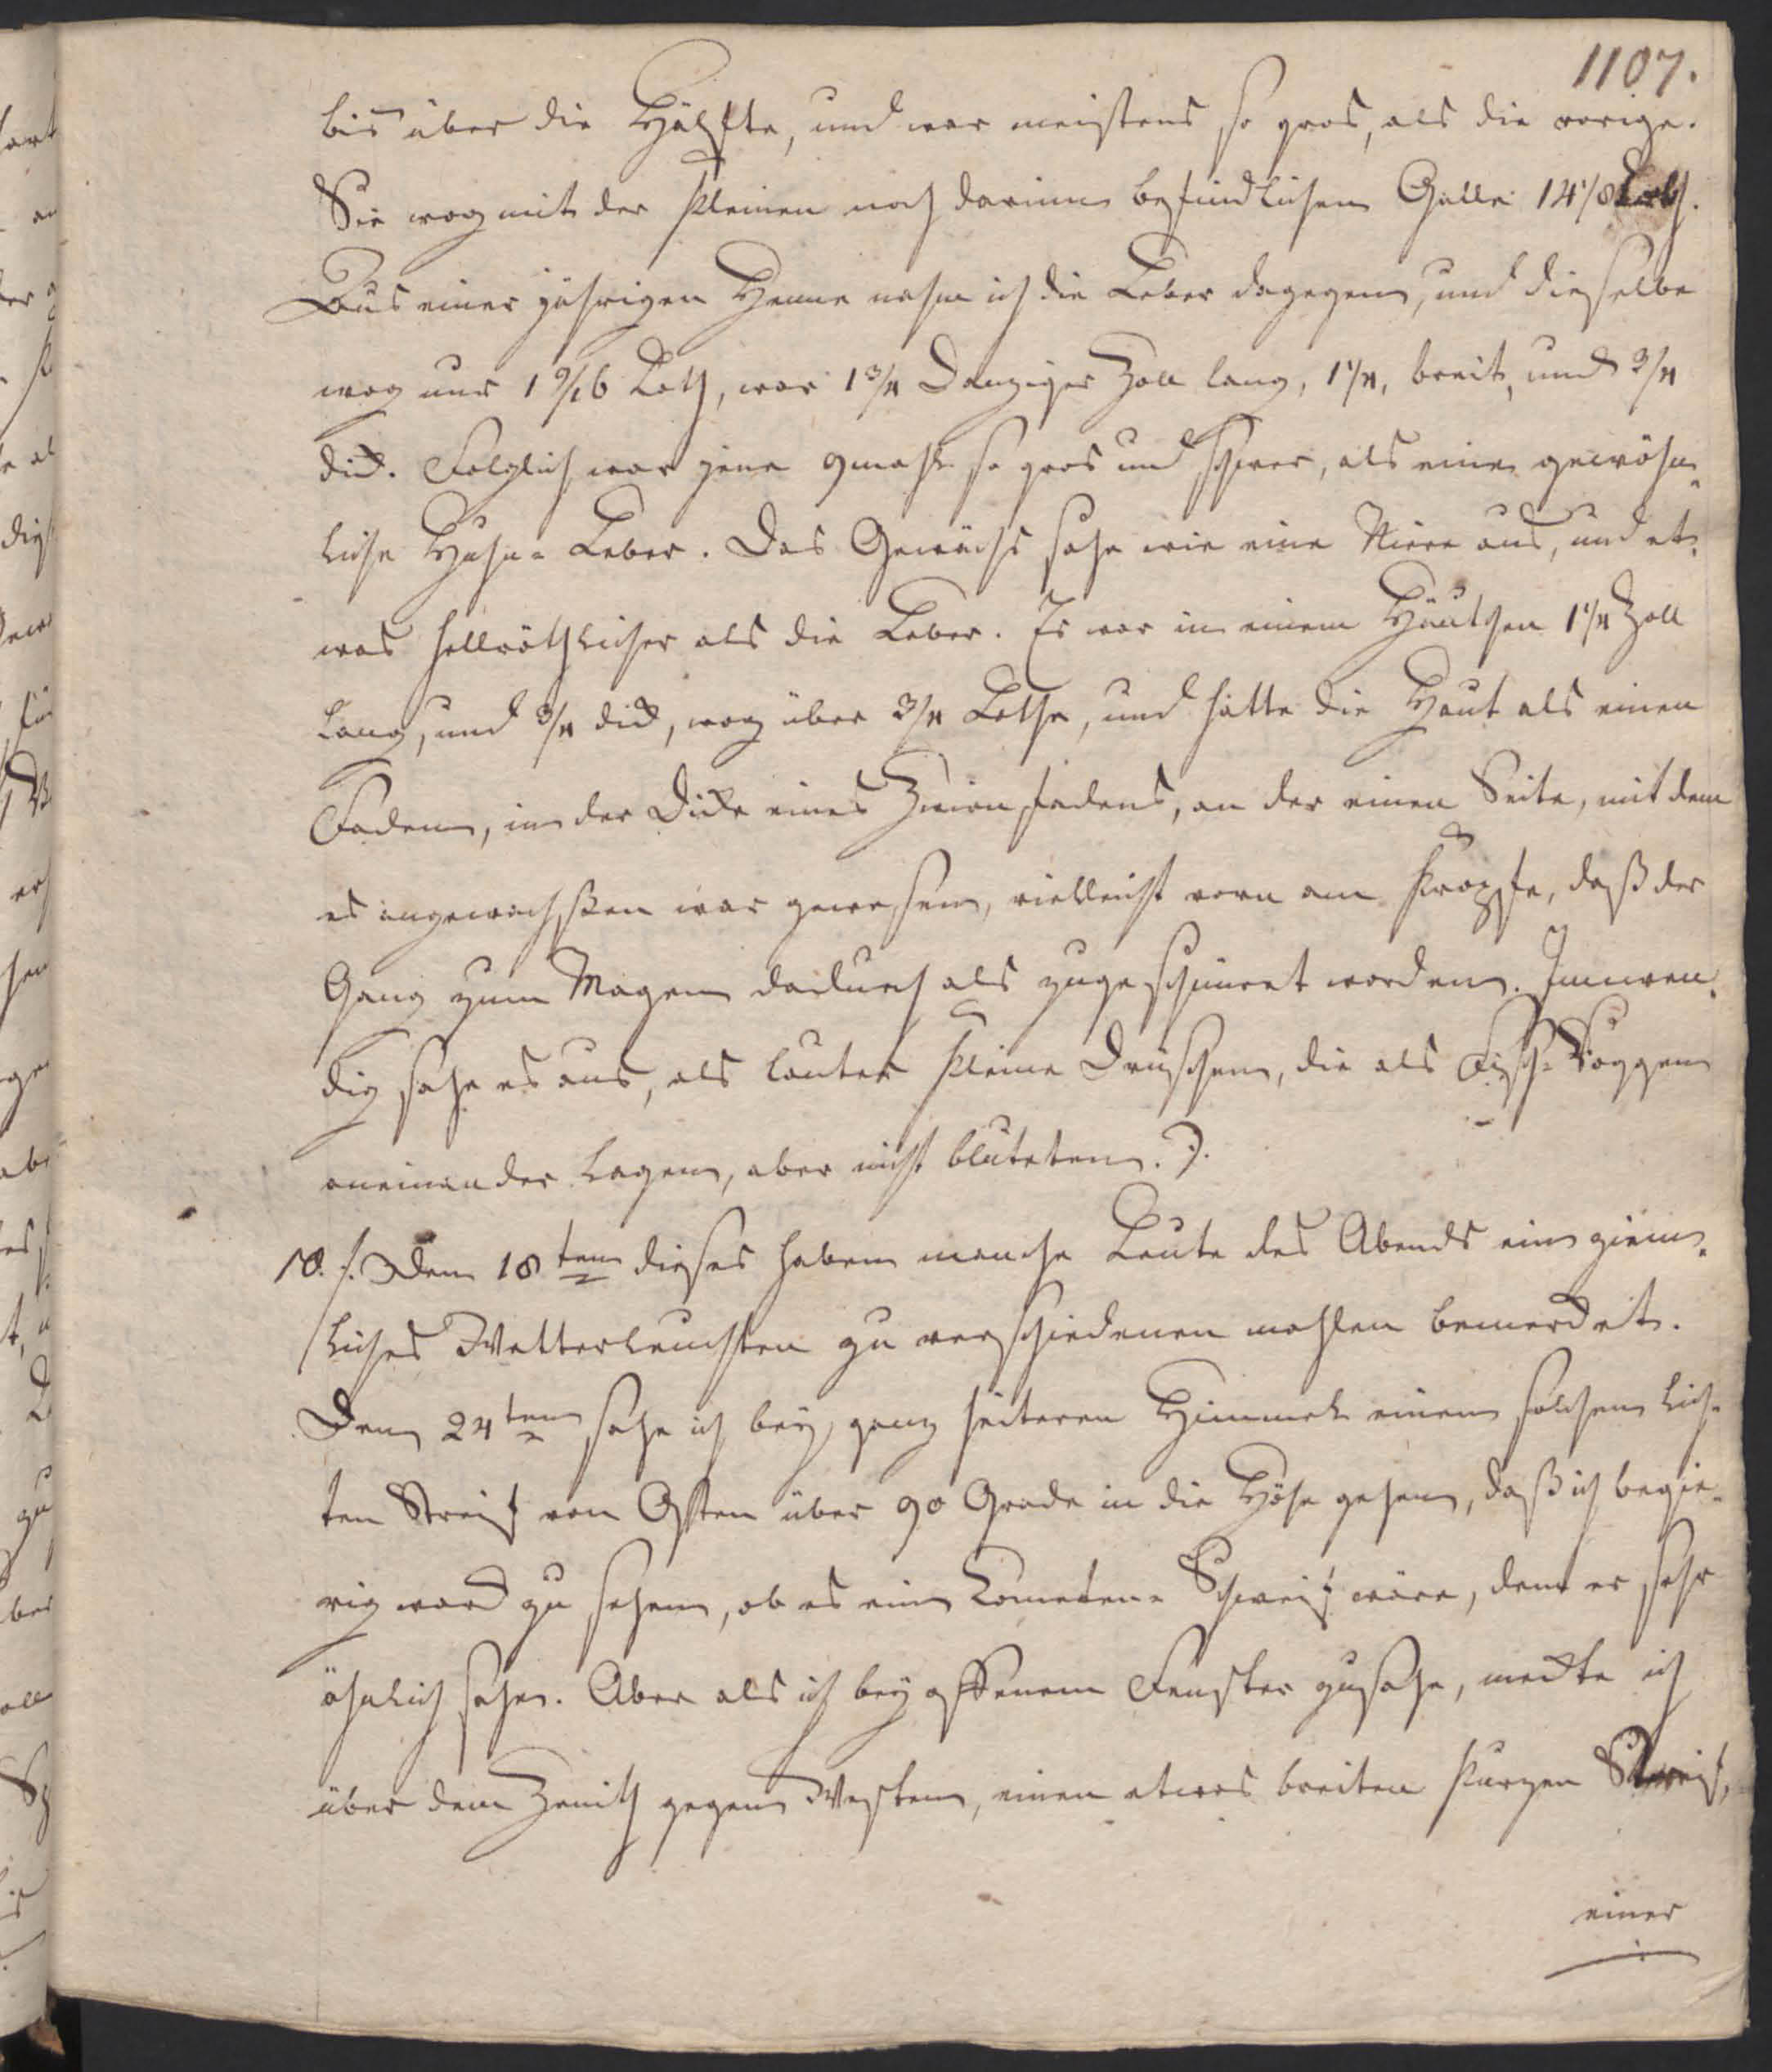 1107.
bis über die Hälffte, und war meistens so gros, als die vorige.
Sie wog mit der kleinen noch darinn befindlichen Galle 14 1/8 Loth.
Aus einer jährigen Henne nahm ich die Leber dagegen, und dieselbe
wog nur 1 9/16 Loth, war 1 3/4 Danziger Zoll lang, 1 1/4, breit, und 3/4
dick. Folglich war jene 9mahl so gros und schwer, als eine gewöhn-
liche Huhn-Leber. Das Gewächs sahe wie eine Niere aus, und et-
was hellröthlicher als die Leber. Es war in einem Häutchen 1 1/4 Zoll
lang, und 3/4 dick, wog über 3/4 Lothe, und hatte die Haut als einen
Faden, in der Dicke eines Zwirnfadens, an der einen Seite, mit dem
es angewachssen war gewesen, vielleicht vorn am Kropfe, daß der
Gang zum Magen dadurch als zugeschnüret worden. Innwen-
dig sahe es aus, als lauter kleine Drüschen, die als Fisch-Roggen
aneinander lagen, aber nicht bluteten.).
18. /. Den 18ten dieses haben manche Leute des Abends ein ziem-
liches Wetterleuchten zu verschiedenen mahlen bemerket.
Den 24ten sahe ich bey ganz heiteren Himmel einen solchen lich-
ten Streif von Osten über 90 Grade in die Höhe gehen, daß ich begie-
rig ward zu sehen, ob es ein Cometen-Schweif wäre, dem er sehr
ähnlich sahe. Aber als ich bey offenem Fenster zusahe, merkte ich
über dem Zenith gegen Westen, einen etwas breiten kurzen Streif,
einer